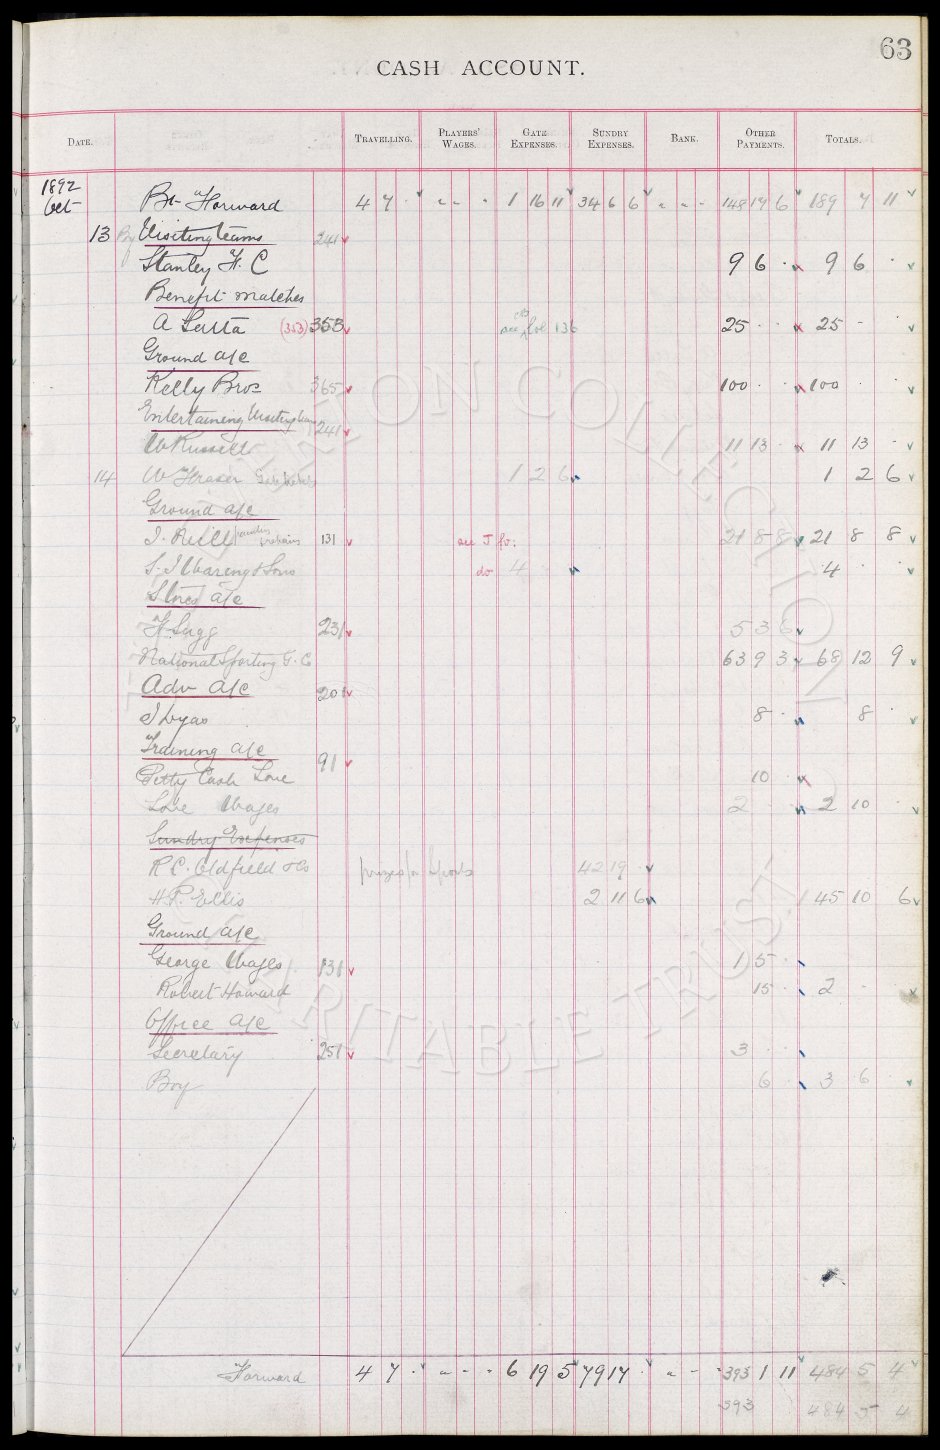 63
CASH ACCOUNT.
DATE. TRAVELLING. PLAYERS' WAGES. GATE EXPENSES. SUNDRY EXPENSES. BANK. OTHER PAYMENTS. TOTALS.
1892
Oct Bt Forward 4 7 · " " " 1 16 11 34 6 6 " " " 148 19 6 189 7 11
13 By Visiting teams 241
Stanley F. C 9 6 · 9 6 ·
Benefit Matches
A Latta (353) 353 see fol 136 25 · · 25 - ·
Ground a/c
Kelly Bros 365 100 · · 100 · ·
Entertaining Visiting teams 241
W Russell 11 13 · 11 13 ·
14 W Fraser 1 2 6 1 2 6
Ground a/c
J. Neill 131 see J fo: 21 8 8 21 8 8
S. J Waring & Sons do 4 · · 4 · ·
Stores a/c
F. Sugg 231 5 3 6
National Sporting G. C 63 9 3 68 12 9
Adv a/c 201
J Lyas 8 · 8 ·
Training a/c 91
Petty Cash Love 10 ·
Love Wages 2 · · 2 10 ·
Sundry Expenses
R. C. Oldfield & Co prizes for Sports 42 19 ·
H. P. Ellis 2 11 6 45 10 6
Ground a/c
George Wages 131 1 5 ·
Robert Howard 15 · 2 · ·
Office a/c
Secretary 251 3 · ·
Boy 6 · 3 6 ·
Forward 4 7 · " " " 6 19 5 79 17 · " " " 393 1 11 484 5 4
393 484 5 4
EVERTON COLLECTION
CHARITABLE TRUST